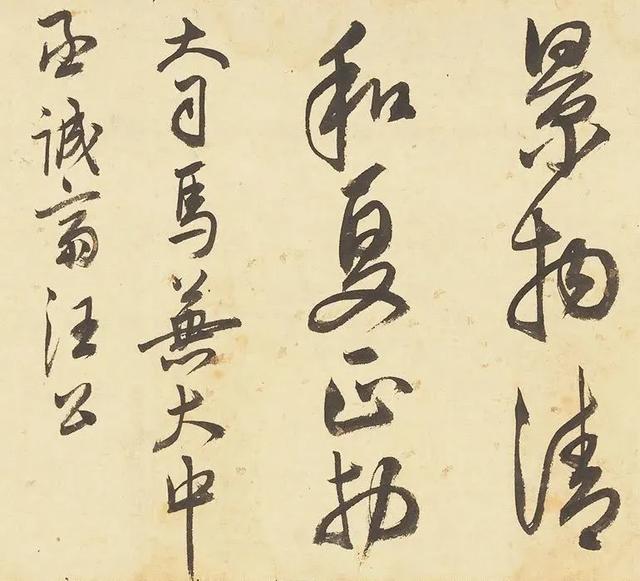 景物清
和夏正初
大司馬兼大中
丞誠齋汪公